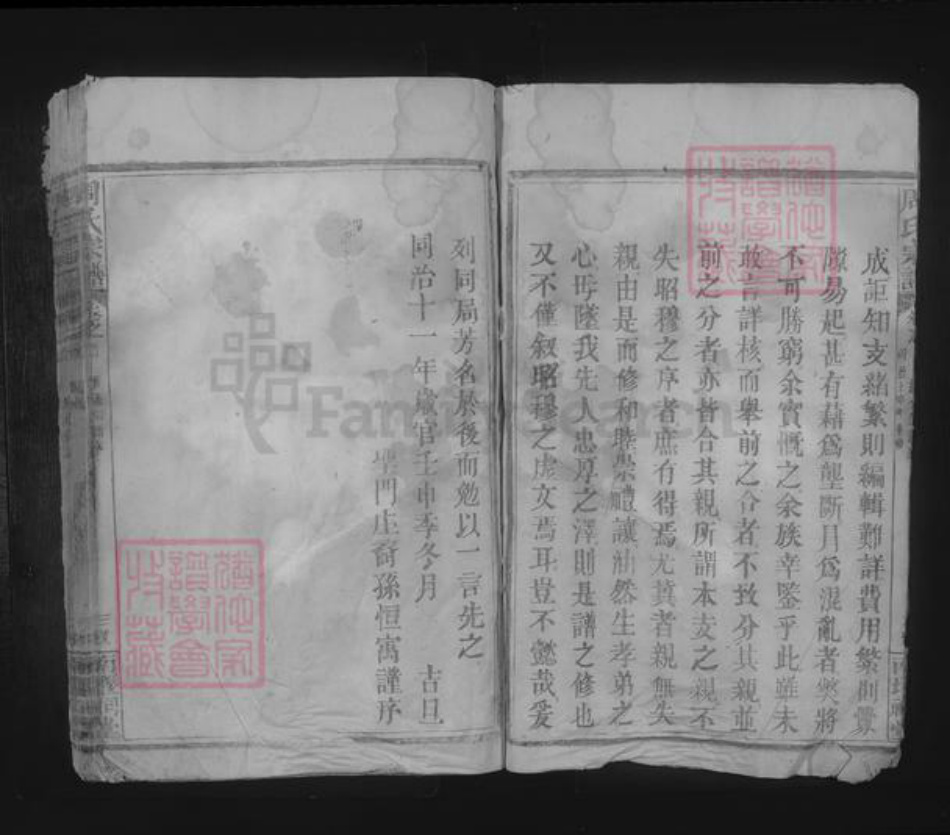 成詎知支繁則編輯難詳費用繁則釁
隙易起甚有藉爲壟斷月爲混亂者弊將
不可勝窮余實慨之余族幸鑒乎此雖未
敢言詳核而舉前之合者不致分其親並
前之分者亦皆合其親所謂本支之親不
失昭穆之序者庶有得焉尤冀者親無失
親由是而修和睦崇禮讓油然生孝弟之
心毋墜我先人忠厚之澤則是譜之修也
又不僅叙昭穆之虚文焉耳豈不懿哉爰
列同局芳名於後而勉以一言先之
同治十一年歲官壬申季冬月 吉旦
門庄裔孫恒寓謹序
周氏宗譜
周氏宗譜 卷之
FamilySearch